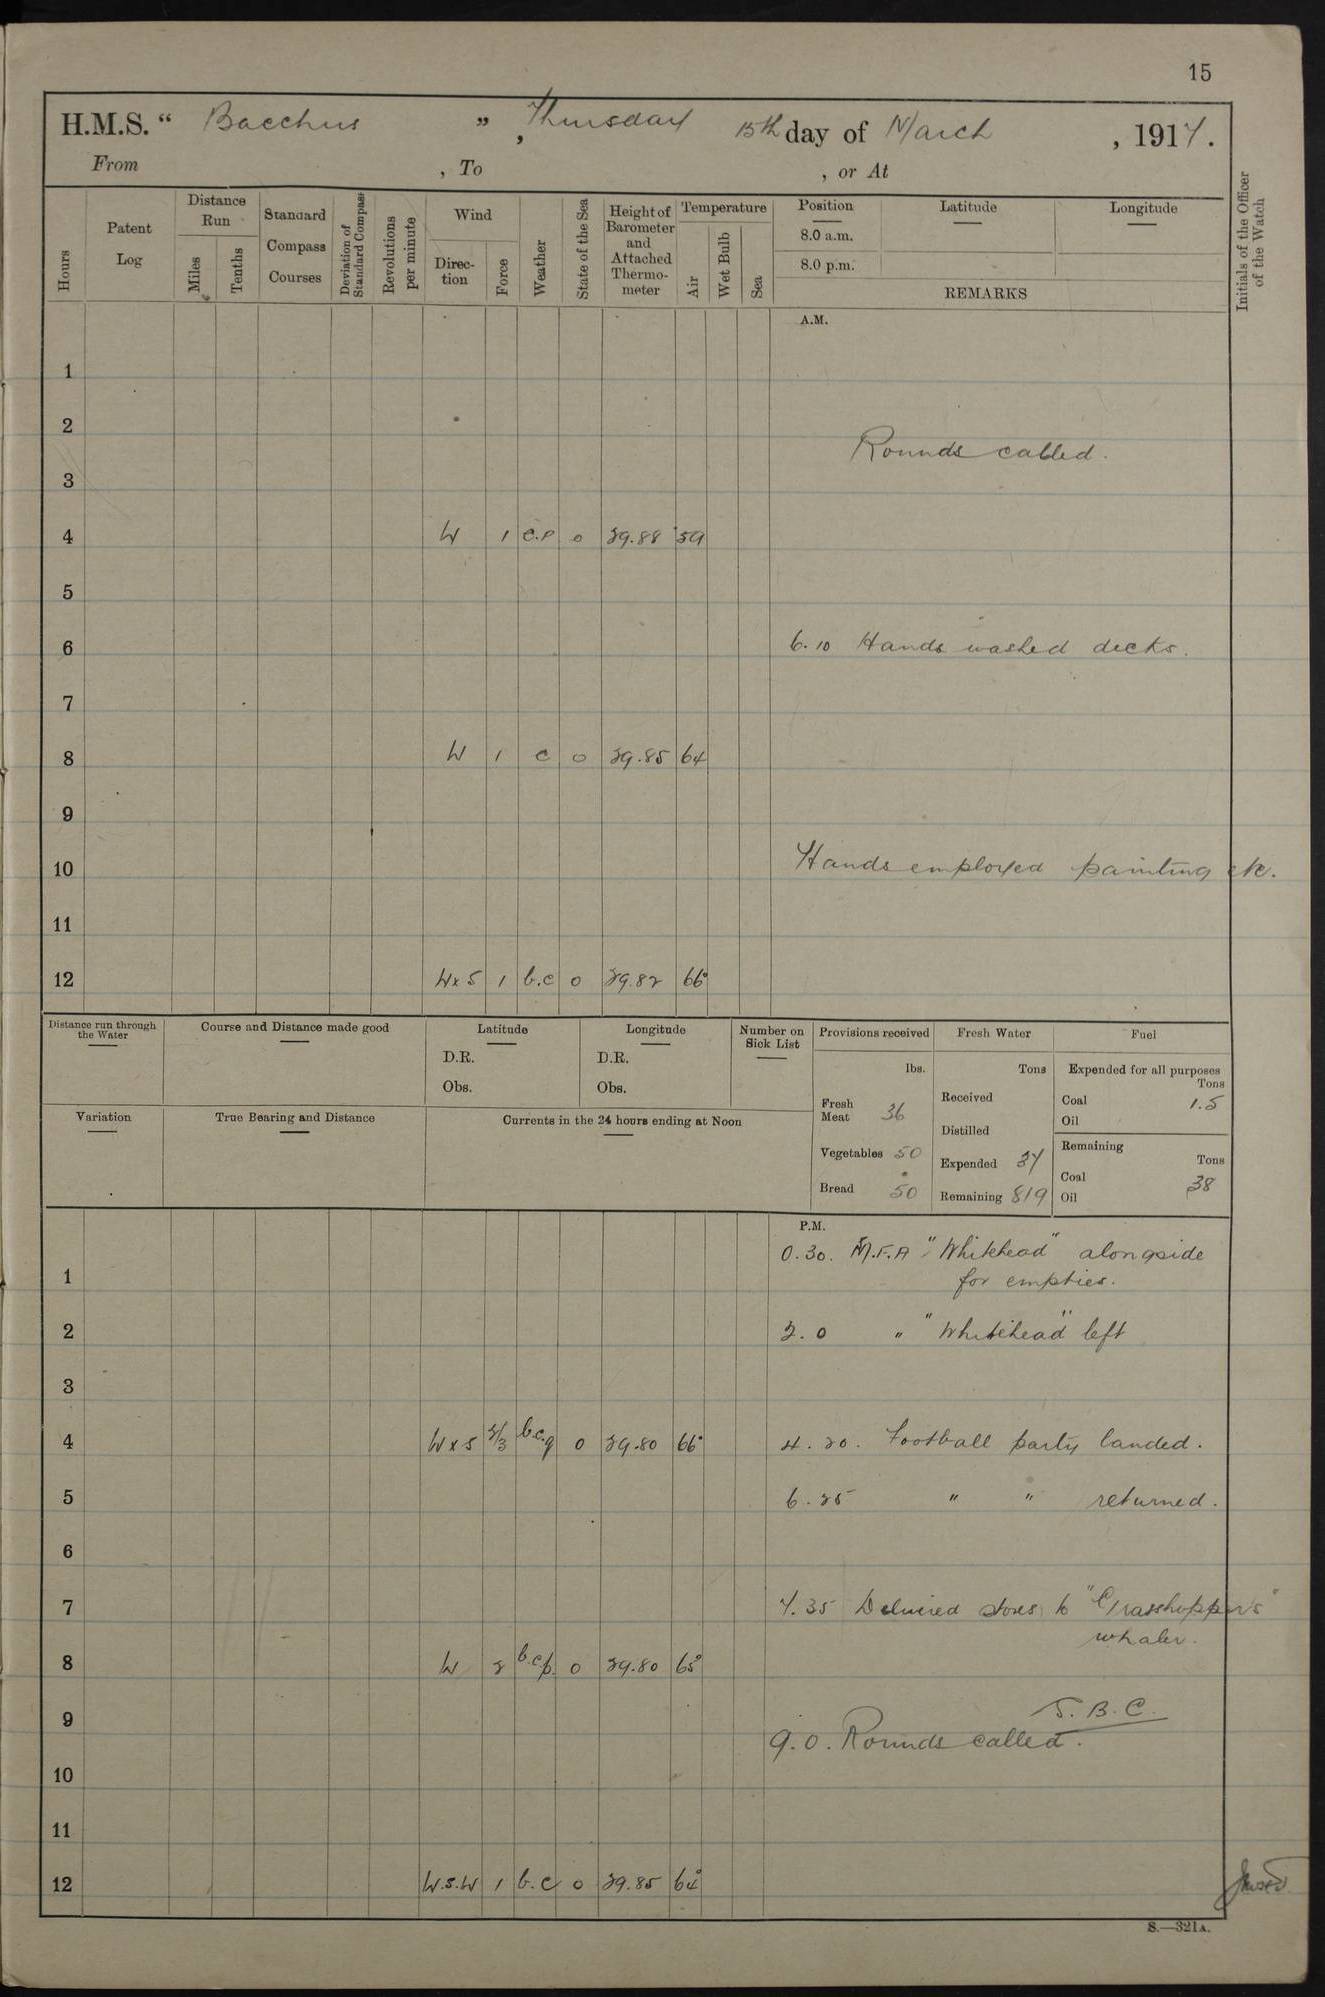 15
H.M.S. “ Bacchus ” , Thursday 15th day of March , 1917.
From , To , or At
Hours
Patent Log
Distance Run
Miles
Tenths
Standard Compass Courses
Deviation of Standard Compass
Revolutions per minute
Wind
Direction
Force
Weather
State of the Sea
Height of Barometer and Attached Thermometer
Temperature
Air
Wet Bulb
Sea
Position Latitude Longitude
8.0 a.m.
8.0 p.m.
REMARKS
Initials of the Officer of the Watch
A.M.
1
2
Rounds called.
3
4 W 1 c.p 0 29.88 59
5
6 6.10 Hands washed decks.
7
8 W 1 c 0 29.85 64
9
10 Hands employed painting etc.
11
12 W x S 1 b.c 0 29.82 66°
Distance run through the Water
Course and Distance made good
Latitude
D.R.
Obs.
Longitude
D.R.
Obs.
Number on Sick List
Provisions received
lbs.
Fresh Meat 36
Vegetables 50
Bread 50
Fresh Water
Tons
Received
Distilled
Expended 27
Remaining 819
Fuel
Expended for all purposes
Tons
Coal 1.5
Oil
Remaining
Tons
Coal 38
Oil
Variation
True Bearing and Distance
Currents in the 24 hours ending at Noon
P.M.
0.30. M.F.A "Whitehead" alongside
1 for empties.
2 2.0 " "Whitehead" left
3
4 W x S 2/3 b.c.q 0 29.80 66° 4.20. Football party landed.
5 6.25 " " returned.
6
7 7.35 Delivered stores to "Grasshopper's"
whaler.
8 W 2 b.c.p. 0 29.80 65°
J.B.C.
9 9.0. Rounds called.
10
11
12 W.S.W 1 b.c 0 29.85 64°
S.—321A.